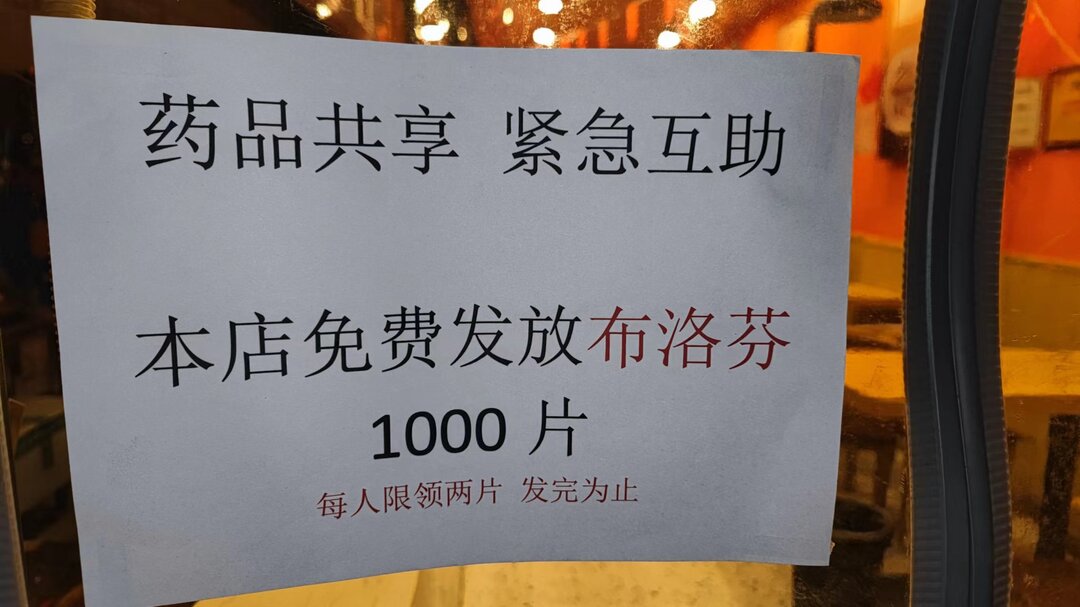 药品共享 紧急互助
本店免费发放布洛芬
1000 片
每人限领两片 发完为止